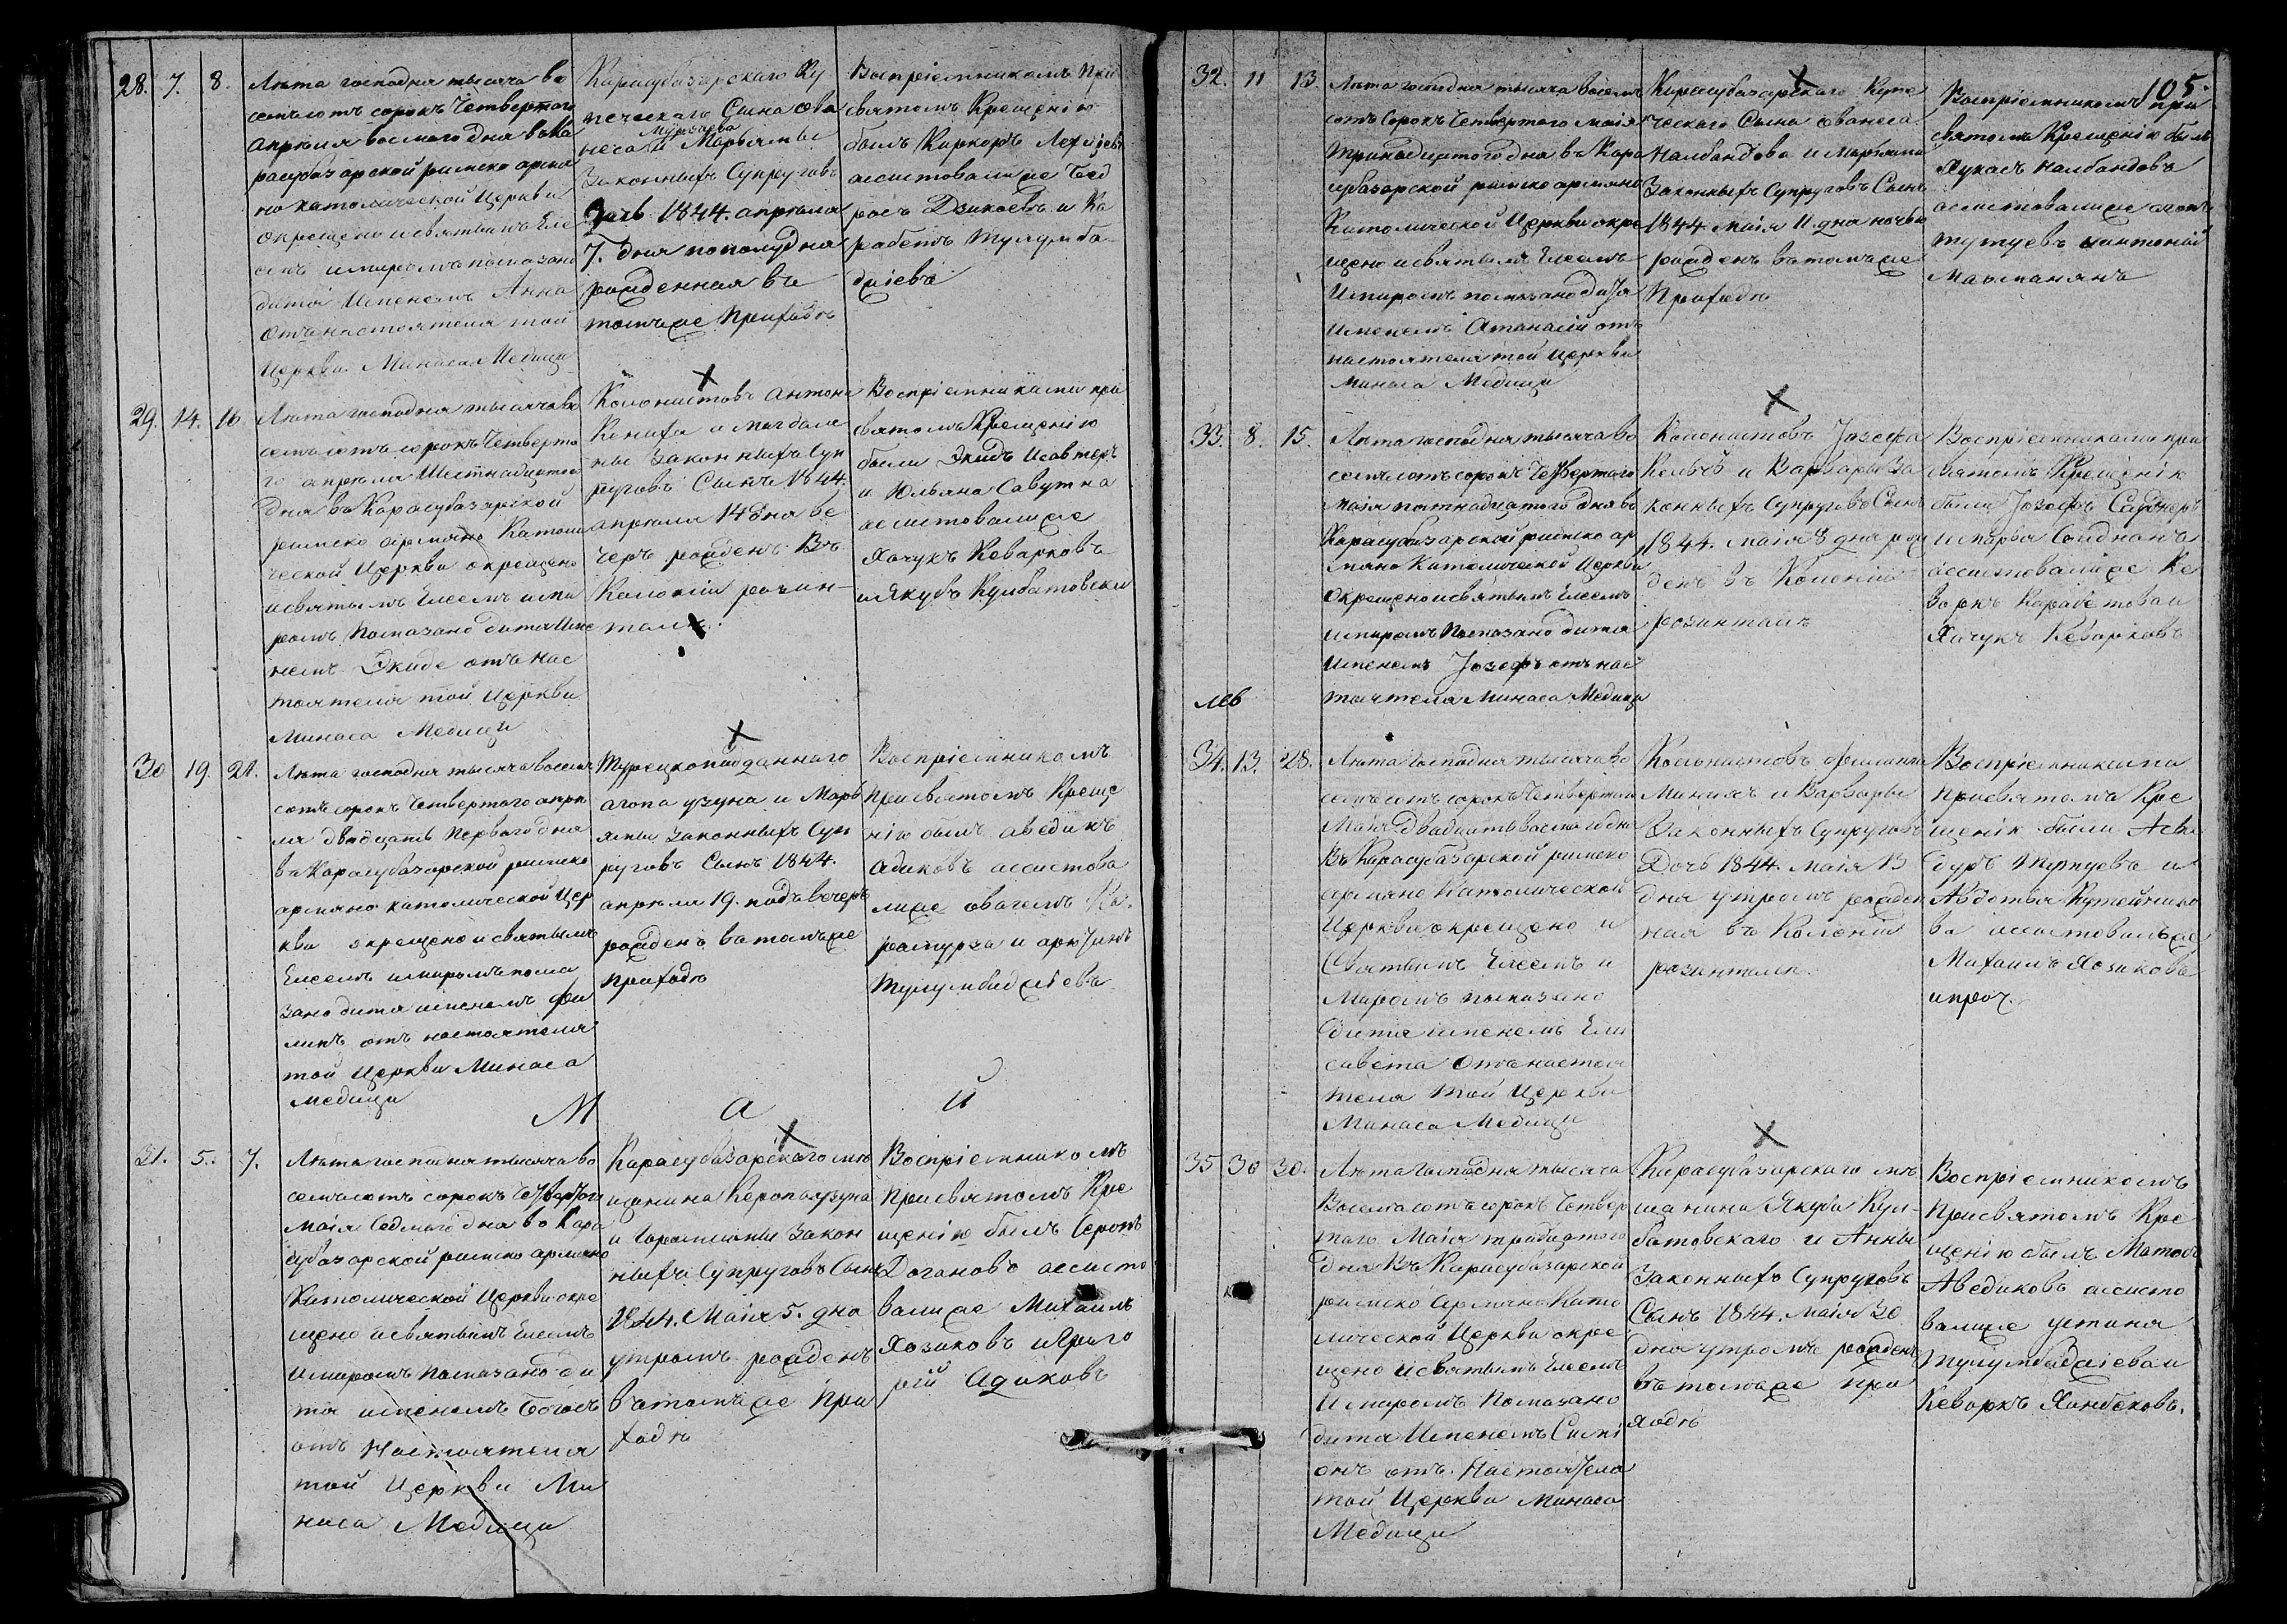 28. 7. 8.
Лѣта господня тысяча во
семьсотъ сорокъ Четвертого
апрѣля восмого дня въ Ка
расубазарской римско армя
но католической Церкви
окрещено и святымъ Еле
емъ и миромъ помазано
дитя Именемъ Анна
отъ настоятеля той
Церкви Минаса Медици
Карасубазарского Ку
печескаго Сына Ова
неса Мурзаева и Марьямы
Законныхъ Супруговъ
Дочь 1844. апрѣля
7. дня пополудня
рожденная въ
томъже Приходѣ
Воспріемникомъ При
святомъ Крещеніи
былъ Киркоръ
ассистовалиже Бед
росъ Дзикаевъ и Ка
рабетъ Тулумба
джіевъ
29. 14. 16
Лѣта господня тысяча во
семьсотъ сорокъ Четверто
го апрѣля Шестнадцатого
дня въ Карасубазарской
римско армяно Катали
ческой Церкви окрещено
и святымъ Елеемъ и ми
ромъ Помазано дитя Име
немъ Эгиде отъ нас
тоятеля той Церкви
Минаса Медици
Колонистовъ Антона
и Магдале
ны Законныхъ Суп
руговъ Сынъ 1844.
апрѣля 14 дня ве
черъ рожденъ Въ
Колоніи розин-
талѣ.
Воспріемниками при
святомъ Крещенію
были Эгидъ
и Юльяна
ассистовалиже
Хачукъ Кеварковъ
и Якубъ Кулбатовски
30 19. 21.
Лѣта господня тысяча восем
сотъ сорокъ Четвертого апрѣ
ля двадцать Первого дня
въ Карасубазарской римско
армяно католической Цер
кви окрещено и святымъ
Елеемъ и миромъ пома
зано дитя именемъ Фи
липъ отъ настоятеля
той Церкви Минаса
Медици
Турецкоподданного
агопа узуна и Марь
ямы законныхъ Суп
руговъ Сынъ 1844.
апрѣля 19. подъ вечеръ
рожденъ въ томъже
приходѣ
Воспріемникомъ
При святомъ Креще
нію былъ аведикъ
Адиковъ ассистова
лиже овагемъ Ка
рамурза и арютинъ
Тулумбаджіевъ
М а й
31. 5. 7.
Лѣта господня тысяча во
семьсотъ сорокъ Четвертого
Маія Седмого дня въ Кара
субазарской римско армяно
Католической Церкви окре
щено и святымъ Елеемъ
и миромъ помазано ди
тя именемъ Богосъ
отъ Настоятеля
той Церкви Ми
наса Медици
Карасубазарского мѣ
щанина Керопа узуна
и Закон
ныхъ Супруговъ Сынъ
1844. Маія 5. дна
утромъ рожденъ
въ томъже При
ходѣ
Воспріемникомъ
При святомъ Кре
щенію былъ Серопъ
Догановъ ассисто
валиже Михаилъ
Хозиковъ и Григо
рій Адиковъ
105.
32. 11 13.
Лѣта господня тысяча восемь
сотъ Сорокъ Четвертого маія
Тринадцатого дна въ Кара
субазарской римско армяно
Католической Церкви окре
щено и святымъ Елеемъ
Имиромъ помазано дитя
именемъ Атанасій отъ
настоятеля той Церкви
Минаса Медици
Карасубазарского Купе
ческаго Сына ованеса
Налбандова и Марьямы
Законныхъ Супруговъ Сынъ
1844 маія 11. дна ночью
рожденъ въ томъже
Приходѣ
Воспріемникомъ при
святомъ Крещеніи былъ
Лукасъ Налбандовъ
ассистовалиже агопъ
Тутуевъ и антоній
33. 8. 15.
Лѣта господня тысяча во
семьсотъ сорокъ Четвертого
маія пятнадцатого дня въ
Карасубазарской римско ар
мяно Католической Церкви
окрещено и святымъ Елеемъ
и миромъ Помазано дитя
именемъ Јозефъ отъ нас
тоятеля Минаса Медици
Колонистовъ Јозефа
и Варвары За
конныхъ Супруговъ Сынъ
1844. маія 8 дня рож
денъ въ Колоніи
розинталѣ
Воспріемниками при
святомъ Крещенію
были Јозефъ
и марья
ассистовалиже Ке
воркъ Карабетовъ и
Хачукъ Кеварковъ
34. 13. 28.
Лѣта Господня тысяча во
семьсотъ сорокъ Четвертого
Маія двадцать восмого дня
Въ Карасубазарской римско
армяно Католической
Церкви окрещено и
Святымъ Елеемъ и
Миромъ помазано
дитя именемъ Ели
савета отъ настоя
теля той Церкви
Минаса Медици
Колонистовъ филиппа
и Варвары
Законныхъ Супруговъ
Дочь 1844. маія 13
дня утромъ рожден
ная въ Колоніи
розинталѣ
Воспріемниками
При святомъ Кре
щеніи были Асва
дуръ Тутуевъ и
Авдотья Кутейнико
ва ассистовалиже
Михаилъ Хозиковъ
и проч.
35 30 30.
Лѣта Господня тысяча
Восемьсотъ сорокъ Четвер
таго Маія тридцатого
дня Въ Карасубазарской
римско Армяно Като
лической Церкви окре
щено и святымъ Елеемъ
И миромъ Помазано
дитя Именемъ Симі
онъ отъ Настоятеля
той Церкви Минаса
Медици
Карасубазарского мѣ
щанина Якуба Кул-
батовскаго и Анны
Законныхъ Супруговъ
Сынъ 1844. маія 30
дня утромъ рожденъ
въ томъже при
ходѣ
Воспріемникомъ
При святомъ Кре
щенію былъ Матосъ
Аведиковъ ассисто
валиже устиня
Тулумбаджіева и
Кеворкъ Ханбековъ.